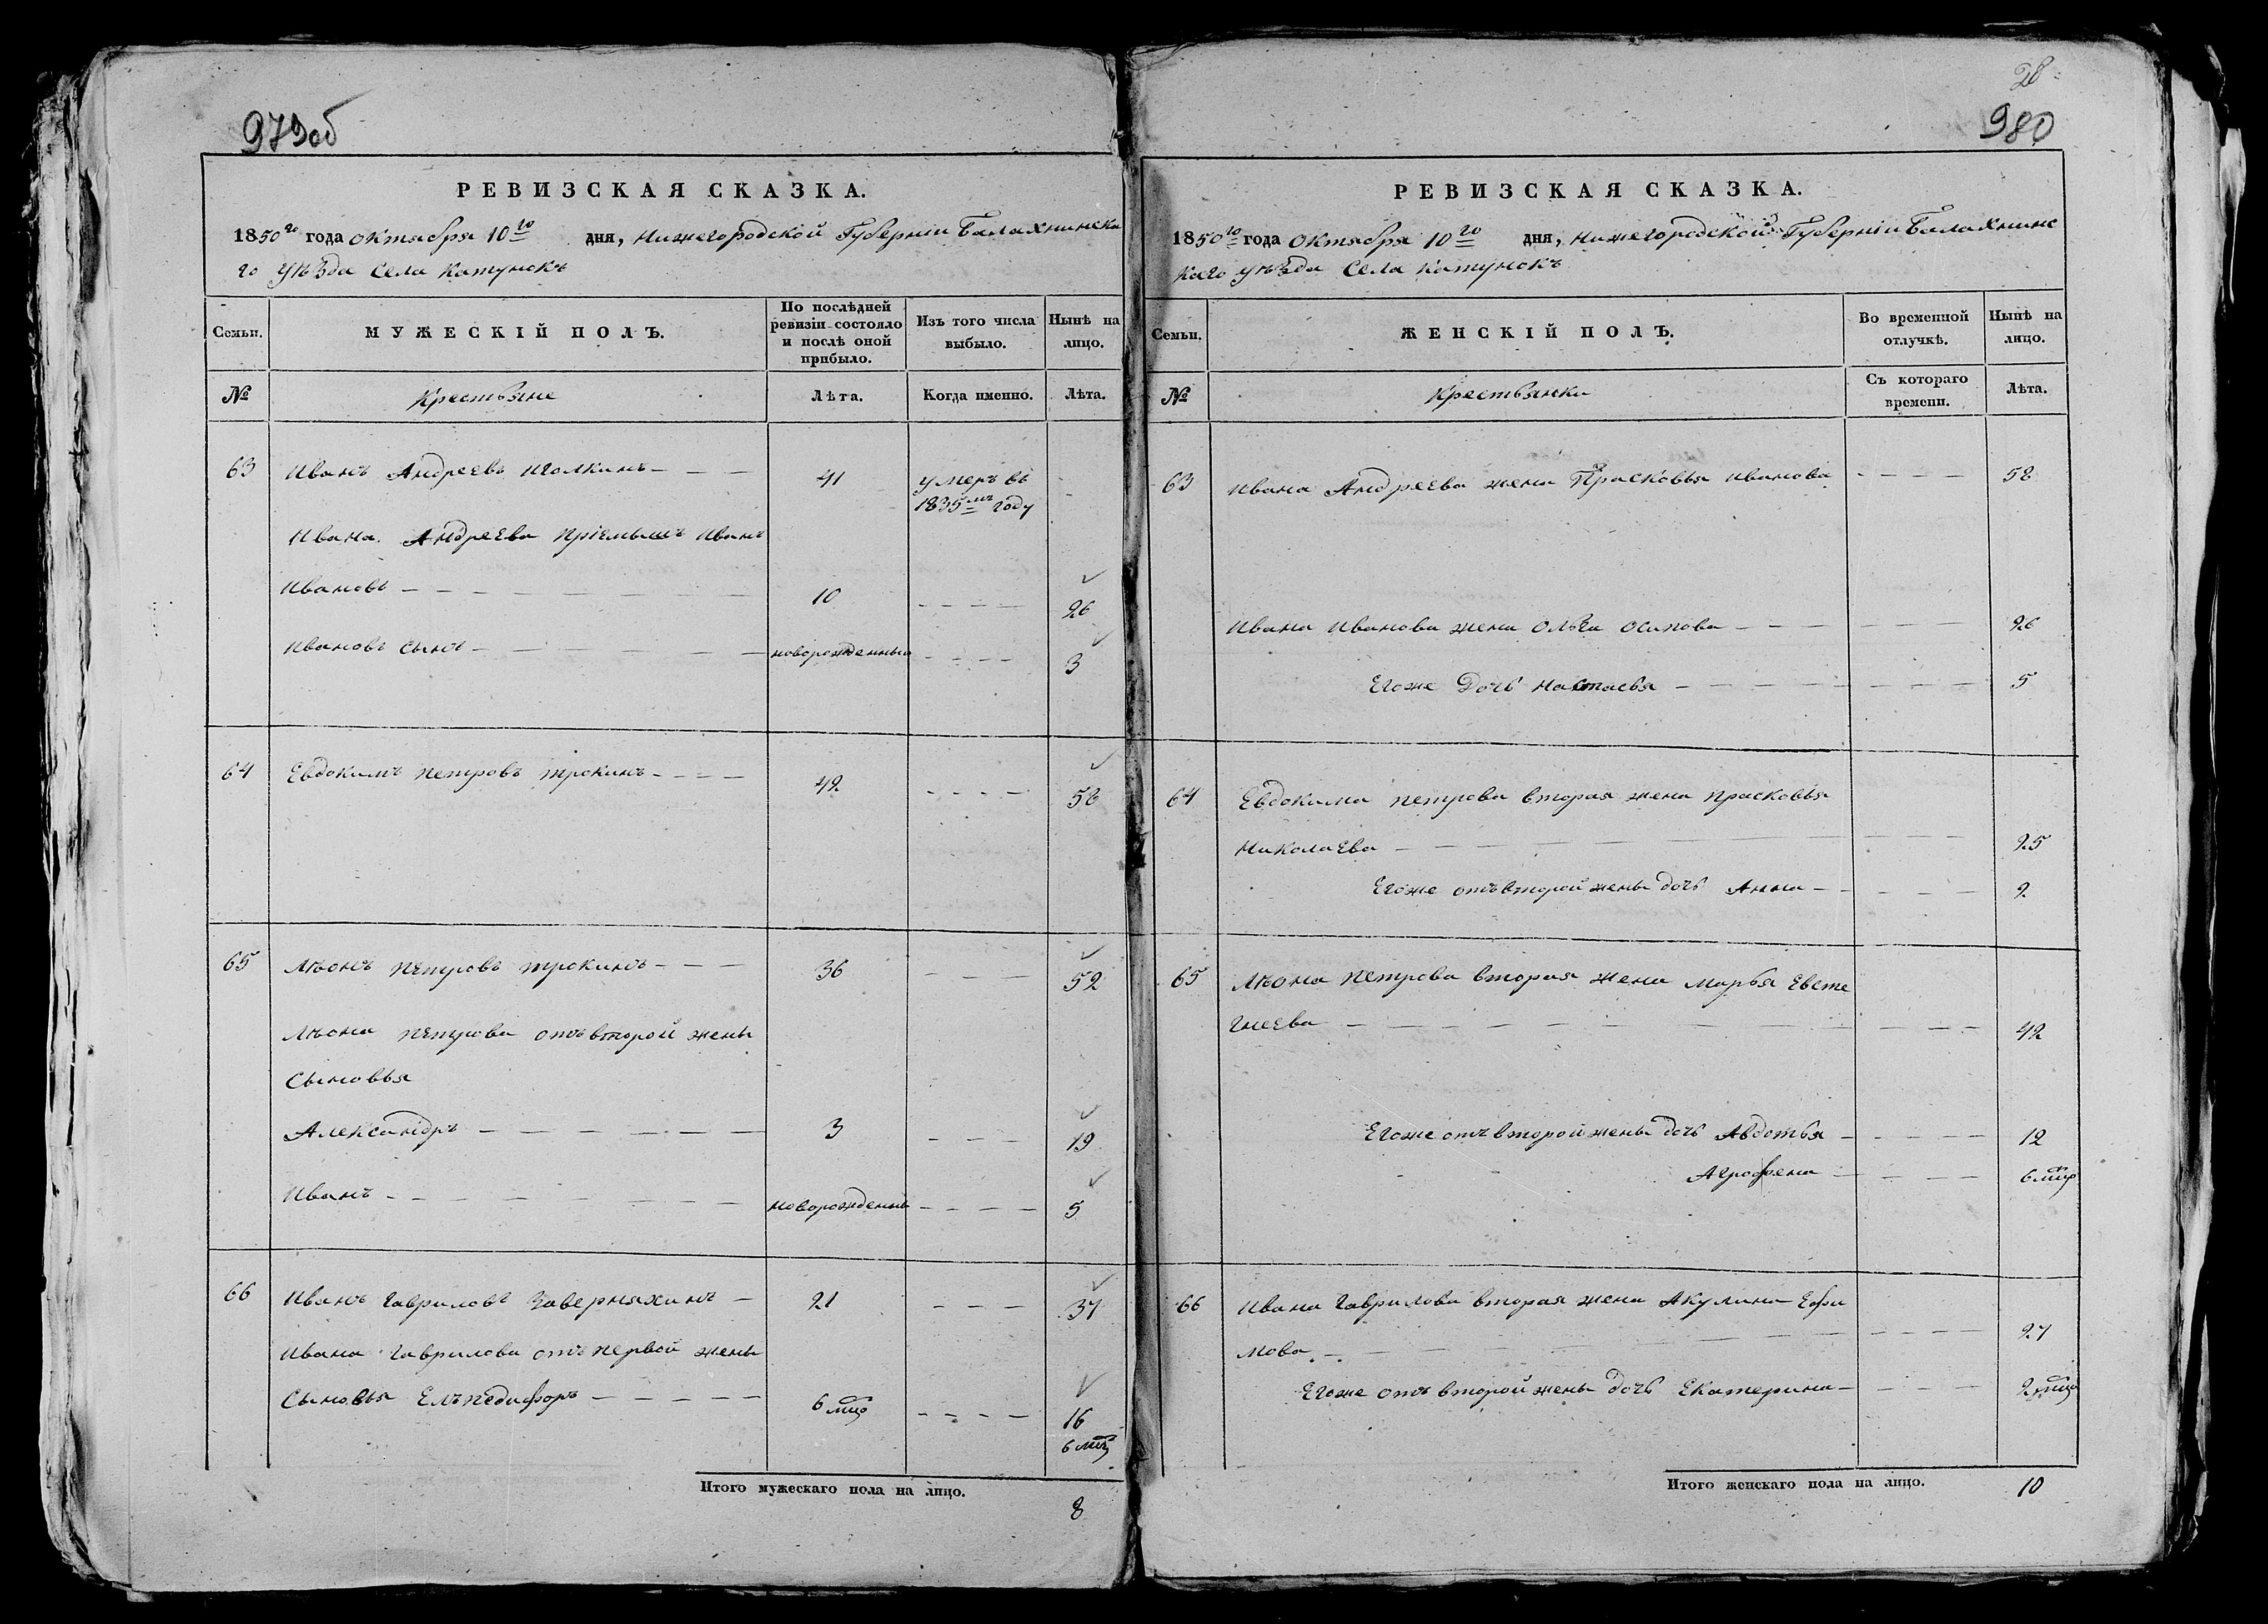 979об
РЕВИЗСКАЯ СКАЗКА.
1850го года октября 10го дня, Нижегородской Губерніи Балахнинска
го уѣзда Села Катунокъ
Семьи. МУЖЕСКІЙ ПОЛЪ. По послѣдней ревизіи состояло и послѣ оной прибыло. Изъ того числа выбыло. Нынѣ на лицо.
№ Крестьяне Лѣта. Когда именно. Лѣта.
63 Иванъ Андреевъ Иголкинъ - - - 41 умеръ въ
1835мъ году -
Ивана Андреева пріемышъ Иванъ
Ивановъ - - - 10 - - - 26
Ивановъ сынъ - - - новорожденный - - - 3
64 Евдокимъ Петровъ Трокинъ - - - 42 - - - 58
65 Лѣонъ Петровъ Трокинъ - - - 36 - - - 52
Лѣона Петрова отъ второй жены
Сыновья
Александръ - - - 3 - - - 19
Иванъ - - - новорожденный - - - 5
66 Иванъ Гавриловъ Заверняхинъ - 21 - - - 37
Ивана Гаврилова отъ первой жены
Сыновья Елъпедифоръ - - - 6 мцъ - - - 16
6 мцъ
Итого мужескаго пола на лицо. 8
28
980
РЕВИЗСКАЯ СКАЗКА.
1850го года Октября 10го дня, Нижегородской Губерніи Балахнинс
каго уѣзда Села Катунокъ
Семьи. ЖЕНСКІЙ ПОЛЪ. Во временной отлучкѣ. Нынѣ на лицо.
№ Крестьянки Съ котораго времени. Лѣта.
63 Ивана Андреева жена Прасковья Иванова - - - 58
Ивана Иванова жена Ольга Осипова - - - 26
Егоже Дочь Настасья - - - 5
64 Евдокима Петрова вторая жена Прасковья
Николаева - - - 25
Егоже отъ второй жены дочь Анна - - - 2
65 Лѣона Петрова вторая жена Марья Евсте
гнеева - - - 42
Егоже отъ второй жены дочь Авдотья - - - 12
Аграфена - - - 6 мцъ
66 Ивана Гаврилова вторая жена Акулина Ефи
мова - - - 27
Егоже отъ второй жены дочь Екатерина - - - 2 мцъ
Итого женскаго пола на лицо. 10